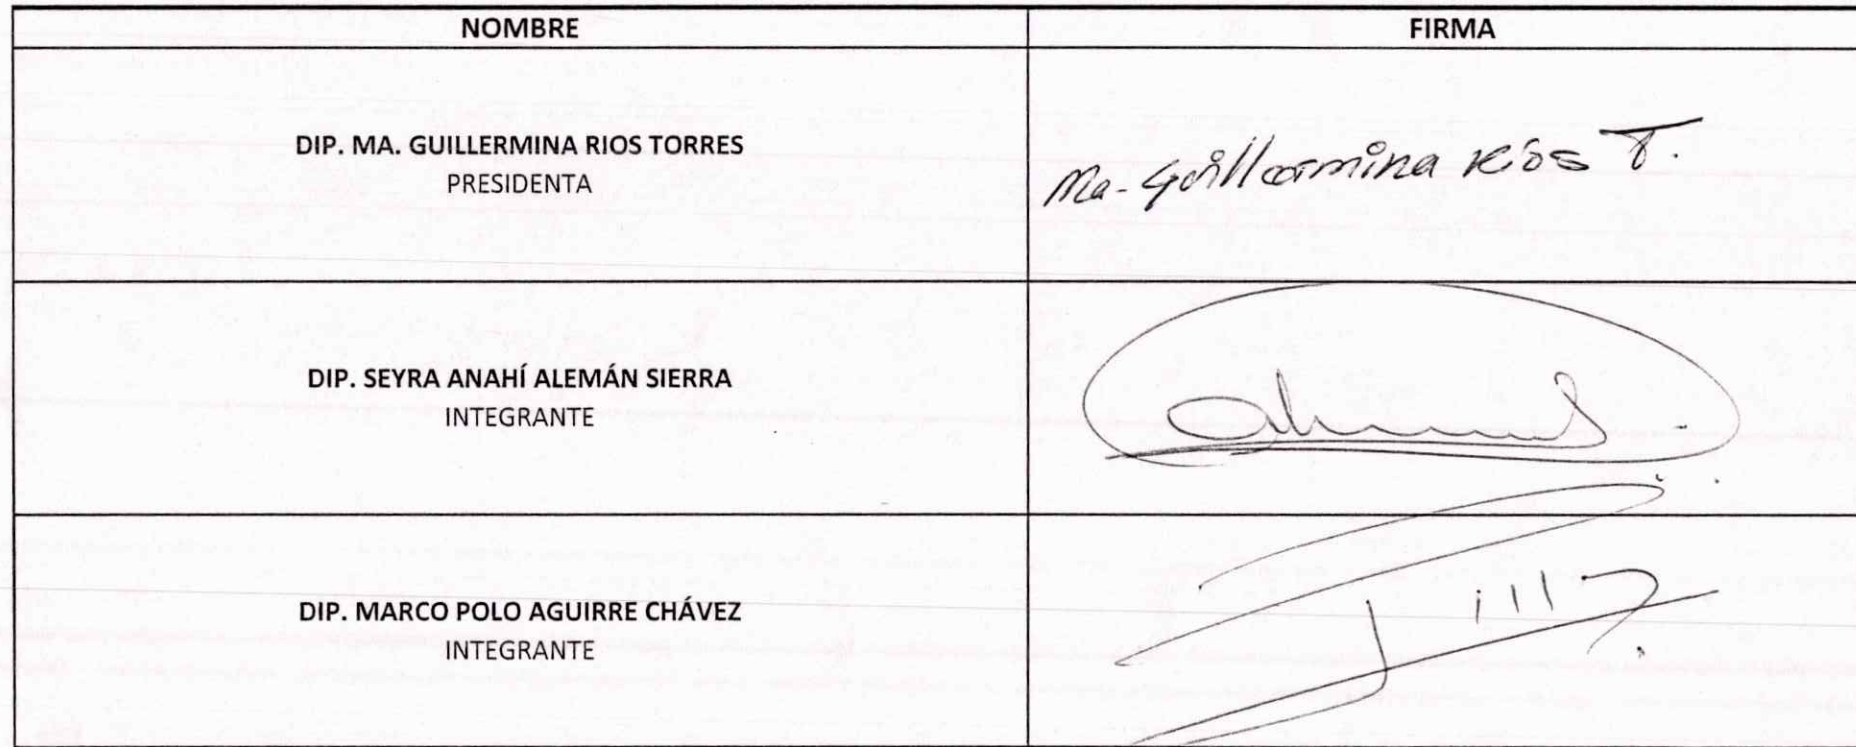 NOMBRE FIRMA
DIP. MA. GUILLERMINA RIOS TORRES
PRESIDENTA
Ma. Guillermina Ríos T.
DIP. SEYRA ANAHÍ ALEMÁN SIERRA
INTEGRANTE
DIP. MARCO POLO AGUIRRE CHÁVEZ
INTEGRANTE